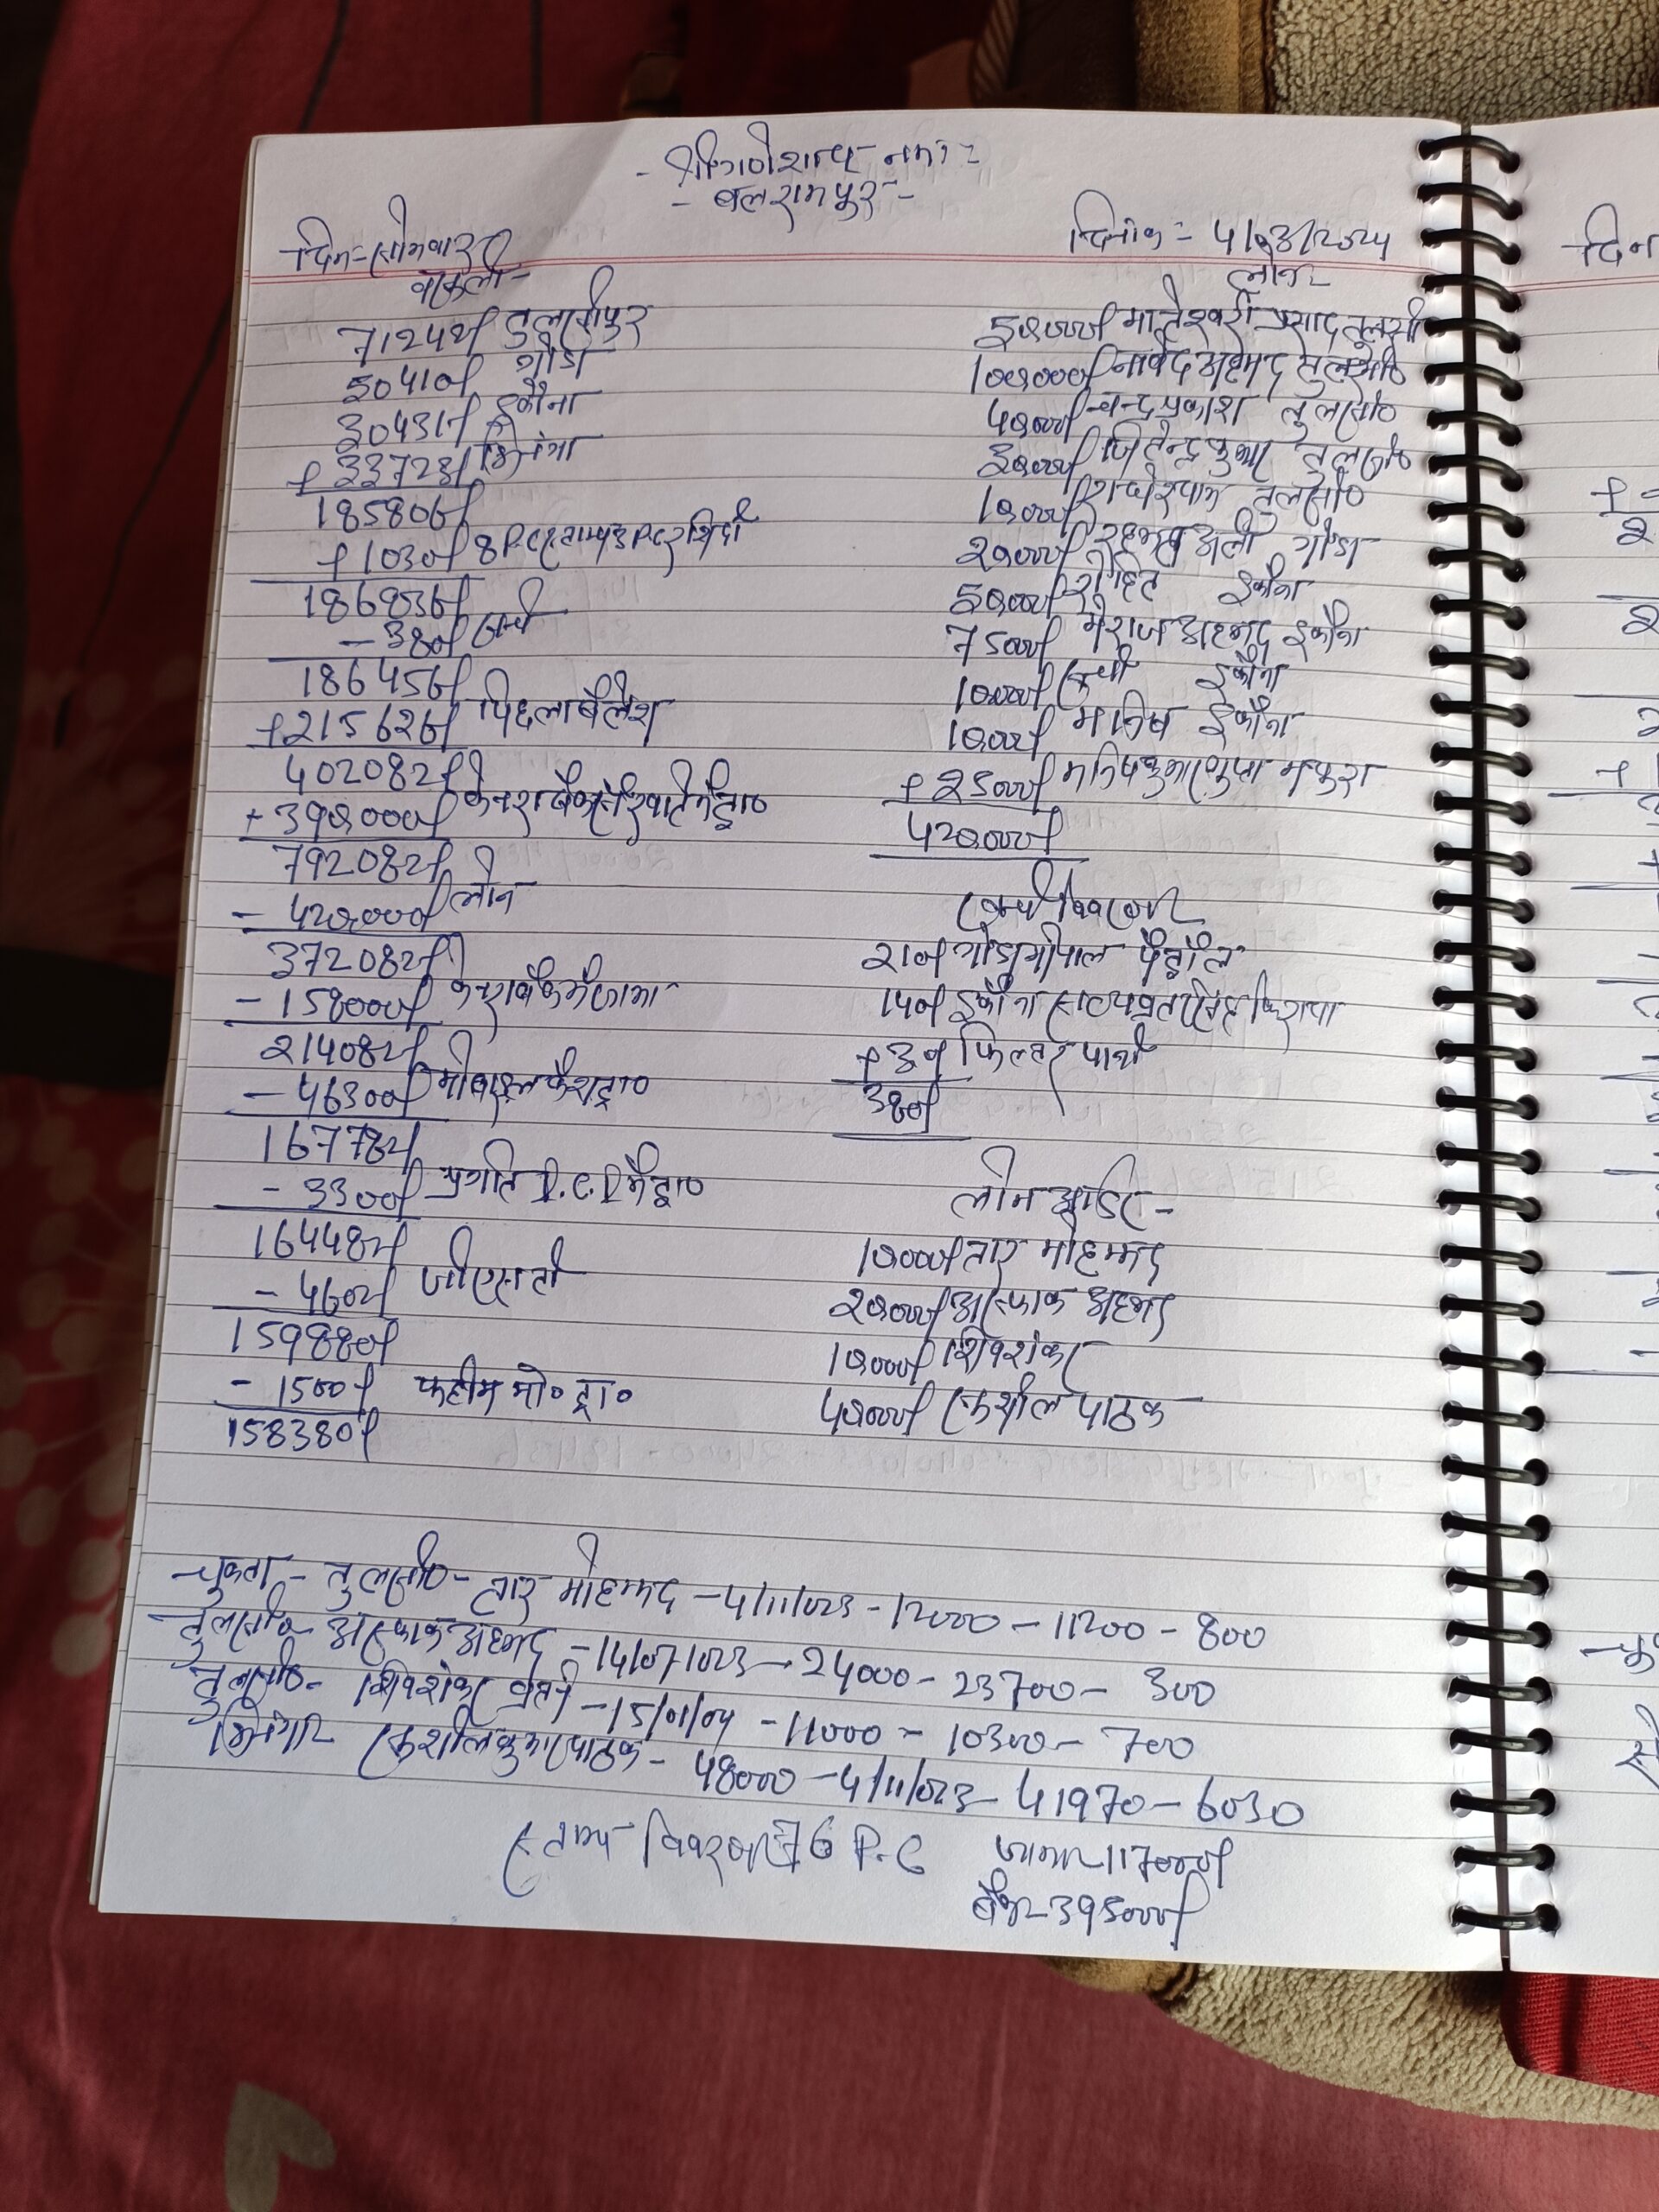 - श्री गणेशाय नमः -
- बलरामपुर -
दिन - सोमवार
दिनांक - 4/03/2024
वसूली -
71244/ तुलसीपुर
50410/ गोंडा
30431/ इकौना
+ 33723/ भिनगा
185806/
+ 1030/ 8 P.C स्टाम्प 3 P.C रसिदी
186836/
- 380/ खर्च
186456/
+ 215626/ पिछला बैलेंश
402082/
+ 390000/ केनरा बैंक से खाते में ट्रा०
792082/
- 420000/ लोन
372082/
- 158000/ केनरा बैंक में जमा
214082/
- 46300/ मोबाइल कैश ट्रा०
167782/
- 3300/ प्रगति R.C.D में ट्रा०
164482/
- 4602/ जीएसटी
159880/
- 1500/ फहीम मो० ट्रा०
158380/
लोन -
50000/ मातेश्वरी प्रसाद तुलसी०
100000/ जावेद अहेमद तुलसी०
40000/ चन्द्र प्रकाश तुलसी०
30000/ जितेन्द्र कुमार तुलसी०
10000/ राधेश्याम तुलसी०
20000/ रहमत अली गोंडा
50000/ रोहित इकौना
75000/ मेराज अहमद इकौना
10000/ इकौना
10000/ मनिष इकौना
+ 25000/ मनिष कुमार गुप्ता मथुरा
420000/
खर्च विवरण -
210/ गोंडा गोपाल पेट्रोल
140/ इकौना सत्यव्रत सिंह किराया
+ 30/ फिल्टर पानी
380/
लोन आडिट -
10000/ तार मोहम्मद
20000/ अस्फाक अहमद
10000/ शिवशंकर
40000/ सुशील पाठक
चुकता - तुलसी० - तार मोहम्मद - 4/11/023 - 12000 - 11200 - 800
तुलसी० - अस्फाक अहमद - 14/07/023 - 24000 - 23700 - 300
तुलसी० - शिवशंकर - 15/01/04 - 11000 - 10300 - 700
भिनगा - सुशील कुमार पाठक - 48000 - 4/11/023 - 41970 - 6030
स्टाम्प विवरण - 76 P.C
जमा - 117000/
बैंक - 395000/